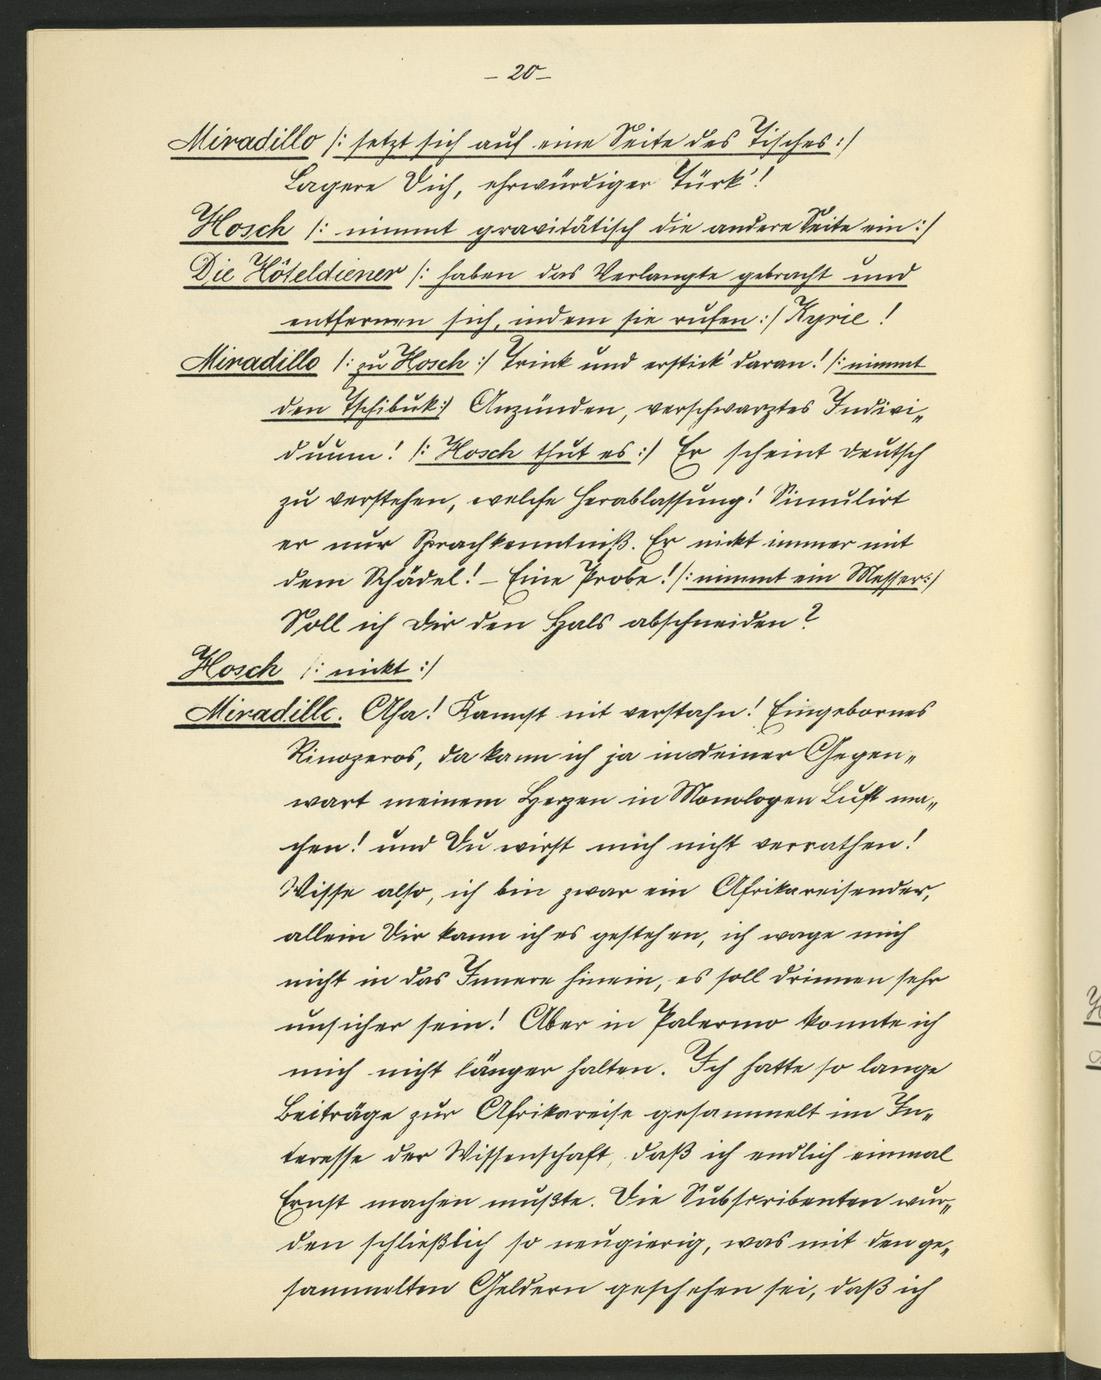 – 20 –
Miradillo /: setzt sich auf eine Seite des Tisches :/
Lagere Dich, ehrwürdiger Türk'!
Hosch /: nimmt gravitätisch die andere Seite ein :/
Die Hôteldiener /: haben das Verlangte gebracht und
entfernen sich, indem sie rufen :/ Kyrie!
Miradillo /: zu Hosch :/ Trink und erstick' daran! /: nimmt
den Tschibuk :/ Anzünden, verschwarztes Indivi„
duum! /: Hosch thut es :/ Er scheint deutsch
zu verstehen, welche Herablassung! Simulirt
er nur Sprachkenntniß. Er nickt immer mit
dem Schädel! – Eine Probe! /: nimmt ein Messer :/
Soll ich Dir den Hals abschneiden?
Hosch /: nickt :/
Miradillo. Aha! Kannst nit verstahn! Eingebornes
Rinozeros, da kann ich ja in deiner Gegen„
wart meinem Herzen in Monologen Luft ma„
chen! und Du wirst mich nicht verrathen!
Wisse also, ich bin zwar ein Afrikareisender,
allein Dir kann ich es gestehen, ich wage mich
nicht in das Innere hinein, es soll drinnen sehr
unsicher sein! Aber in Palermo konnte ich
mich nicht länger halten. Ich hatte so lange
Beiträge zur Afrikareise gesammelt im In„
teresse der Wissenschaft, daß ich endlich einmal
Ernst machen mußte. Die Subscribenten wur„
den schließlich so neugierig, was mit den ge„
sammelten Geldern geschehen sei, daß ich